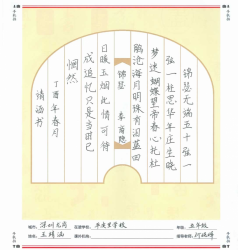 锦瑟无端五十弦一
弦一柱思华年庄生晓
梦迷蝴蝶望帝春心托杜
鹃沧海月明珠有泪蓝田
锦瑟 李商隐
日暖玉烟此情可待
成追忆只是当时已
惘然
丁酉年春月
涵书
深圳龙岗 学校 年级: 五年级
姓名: